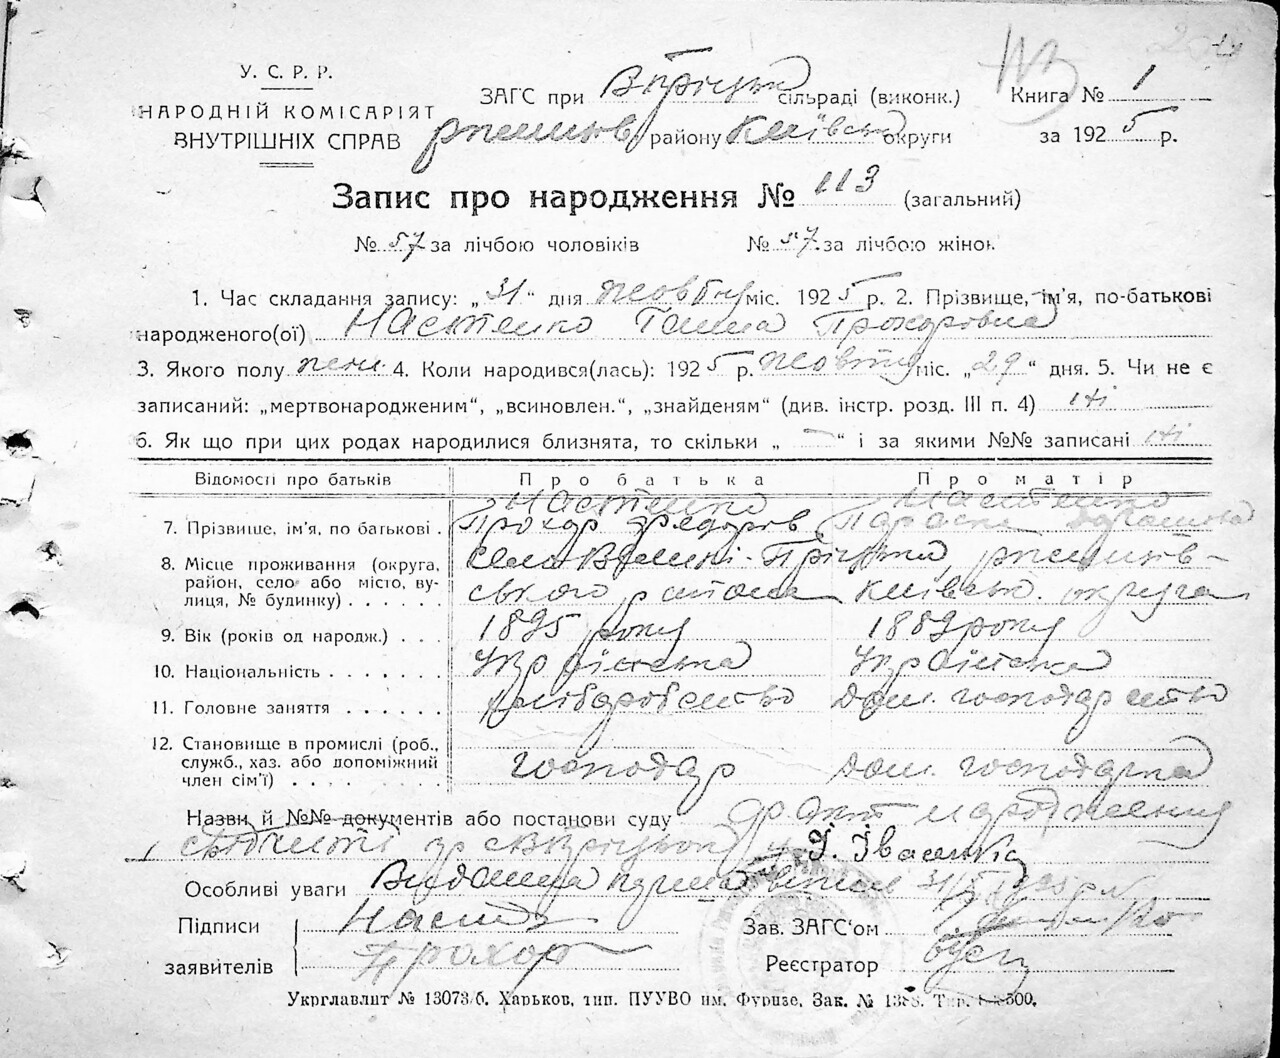 У. С. Р. Р.
НАРОДНІЙ КОМІСАРІЯТ
ВНУТРІШНІХ СПРАВ
ЗАГС при Втріцькій сільраді (виконк.) Книга № 1
району Київськ округи за 1925 р.
Запис про народження № 113 (загальний)
№ 57 за лічбою чоловіків № 57 за лічбою жінок
1. Час складання запису: „31“ дня жовтня міс. 1925 р. 2. Прізвище, ім'я, по-батькові
народженого(ої) Настенко Ганна Прохоровна
3. Якого полу жен. 4. Коли народився(лась): 1925 р. жовтня міс. „29“ дня. 5. Чи не є
записаний: „мертвонародженим“, „всиновлен.“, „знайденям“ (див. інстр. розд. III п. 4) ні
6. Як що при цих родах народилися близнята, то скільки „ — “ і за якими №№ записані ні
Відомості про батьків Про батька Про матір
Настенко Настенко
7. Прізвище, ім'я, по батькові . Прохор Федоров Параска
8. Місце проживання (округа, село Великі-Пріцьки,
район, село або місто, ву-
лиця, № будинку) . . . . . . ського района Київськ. округа
9. Вік (років од народж.) . . . 1895 року 1889 року
10. Національність . . . . . . . Українська Українська
11. Головне заняття . . . . . . хліборобство дом. господарство
12. Становище в промислі (роб.,
служб., хаз. або допоміжний господар дом. господарка
член сім'ї) . . . . . . . . .
Назви й №№ документів або постанови суду факт народження
І. Іваненка
Особливі уваги Видана
Підписи Наст Зав. ЗАГС'ом
заявителів Прохор Реєстратор
Укрглавлит № 13073/б. Харьков, тип. ПУУВО им. Фрунзе, Зак. № 1388. Тир.